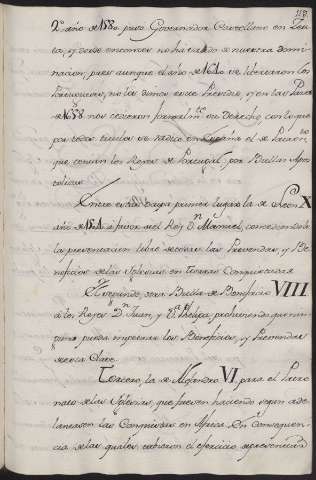 2º año de 1580. puso Governador Castellano en Ceu
ta, y desde entonces no ha faltado de nuestra domi
nacion, pues aunque el año de 1640 se libertaron los
Portugueses, no la dimos este Presidio, y en las Pazes
de 1668 nos cedieron formalmte su derecho, con lo que
por todos titulos se radicó en España el de Patronato
que tenian los Reyes de Portugal, por Bullas Apos
tolicas.
Entre estas tenga primer lugar la de Leon X
año de 1514 a favor del Rey Dn Manuel, concediendole
la presentacion libre de todas las Prevendas, y Be
neficios de las Iglesias en tierras Conquistadas.
El segundo, otra Bulla de Bonifacio VIII
á los Reyes Dn Juan, y Da Phelipa, prohiviendo que nin
guno pueda impetrar los Beneficios, y Prevendas
de esta clase.
Tercero, la de Alejandro VI, para el Patro
nato de las Iglesias, que fuesen haciendo segun ade
lantasen las Conquistas en Africa. En consequen
cia de las quales tubieron el exercicio, y presentacion